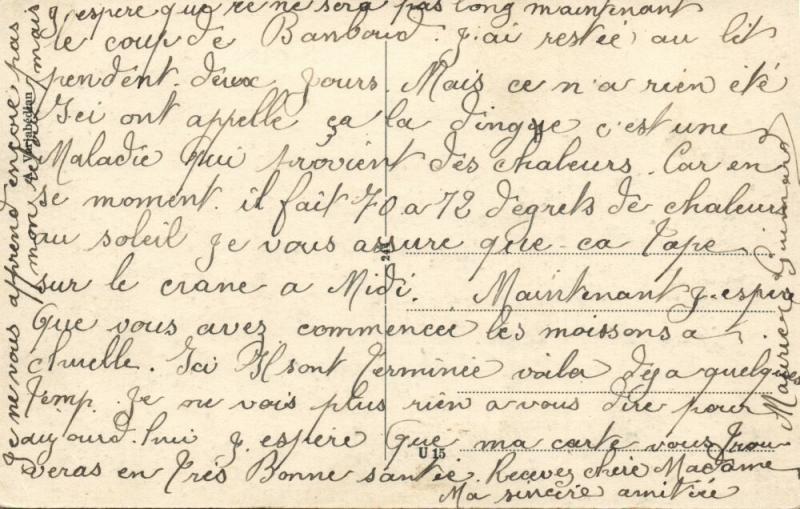 J, espere que ce ne sera pas long maintenant
le coup de Bamboud. J. ai restée au lit
pendent. deux Jours. Mais ce n a rien été
Ici ont appelle ça la dingue c'est une
Maladie qui provient des chaleurs. Car en
se moment. il fait 70 a 72 degrets de chaleurs
au soleil Je vous assure que ca Tape
sur le crane a Midi. Maintenant J. espere
Que vous avez commencer les moissons a
chuelle. Ici Il sont Terminée voila deja quelques
Temp. Je ne vois plus rien a vous dire pour
aujourd. hui J. espère que ma carte vous Trou
veras en Très Bonne santée. Recevez chere Madame
Ma sincère amitiée
Maurice
Je ne vous apprend encore pas
mon mais
Varjabedian
244
U 15